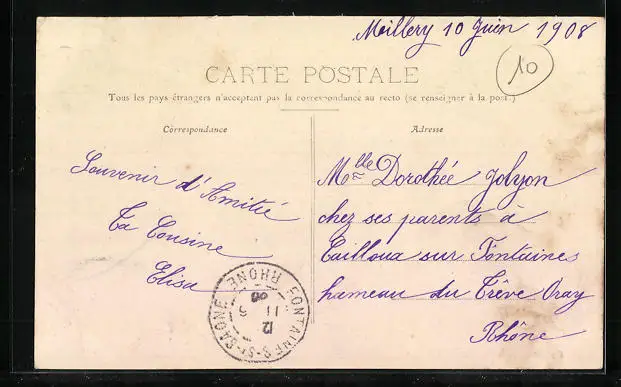 Millery 10 Juin 1908
10
CARTE POSTALE
Tous les pays étrangers n'acceptent pas la correspondance au recto (se renseigner à la poste)
Correspondance
Adresse
Souvenir d'Amitié
Ta Cousine
Elisa
Mlle Dorothée Jolyon
chez ses parents à
Cailloux sur Fontaines
hameau du Trêve Oray
Rhône
FONTAINES-S-SAONE RHONE
12
11 6
08